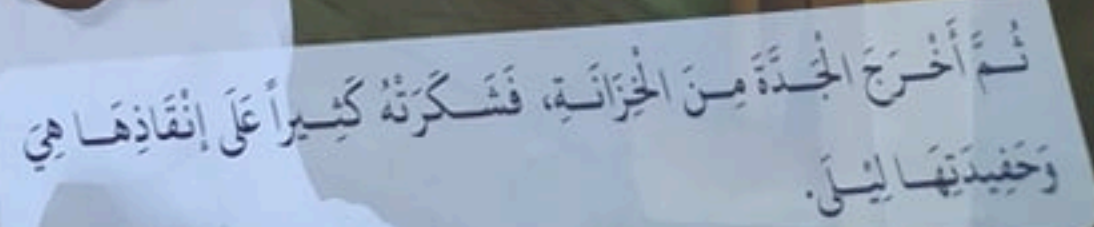 ثُمَّ أَخْرَجَ الْجَدَّةَ مِنَ الْخِزَانَةِ، فَشَكَرَتْهُ كَثِيراً عَلَى إِنْقَاذِهَا هِيَ
وَحَفِيدَتِهَا لِيْلَى.